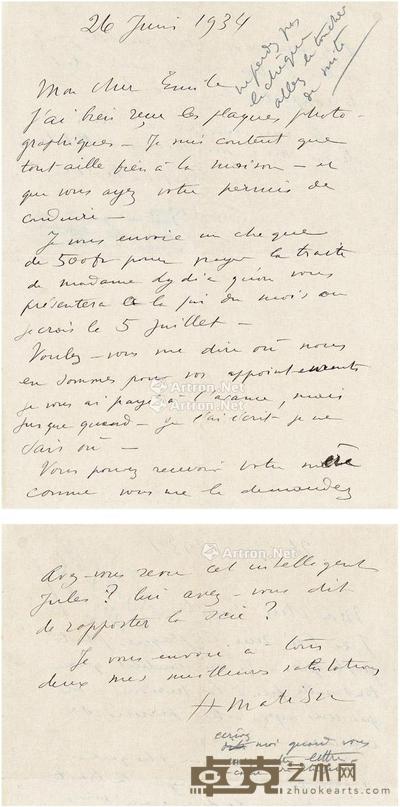 26 Juni 1934
ne perdez pas
le chèque
allez le toucher
de suite
Mon cher Emile
J'ai bien reçu les plaques photo-
graphiques – Je suis content que
tout aille bien à la maison – et
que vous ayez votre permis de
conduire –
Je vous envoie un cheque
de 500fr pour payer la traite
de madame Lydia qu'on vous
présentera à la fin du mois ou
je crois le 5 Juillet –
Voulez-vous me dire où nous
en sommes pour vos appointements
je vous ai payé à l'avance, mais
jusque quand – je l'ai écrit je ne
sais où –
Vous pouvez recevoir votre mère
comme vous me le demandez
Artron.Net
Artron.Net
Artron.Net
Avez-vous revu cet intelligent
Jules ? lui avez-vous dit
de rapporter la scie ?
Je vous envoie à tous
deux mes meilleures salutations
H Matisse
écrivez
moi quand vous
lettre
卓克艺术网
zhuokearts.com